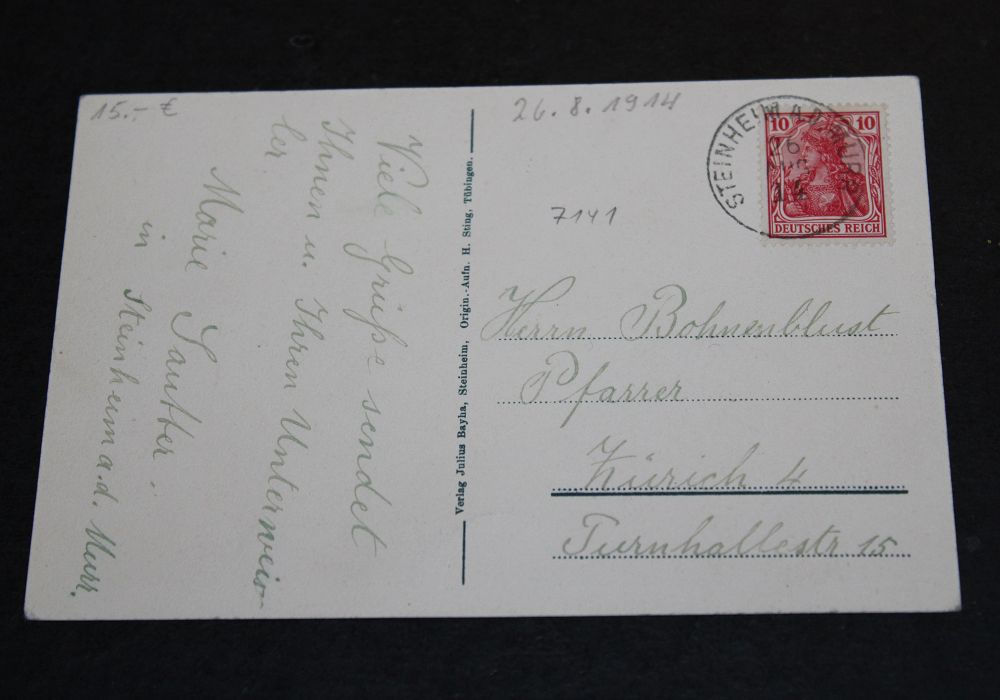 15.- €
Viele Grüße sendet
Ihnen u. Ihren Unterweis-
ler
Marie Sautter.
in
Steinheim a.d. Murr.
Verlag Julius Bayha, Steinheim, Origin.-Aufn. H. Sting, Tübingen.
26.8.1914
7141
STEINHEIM A.D. MURR
26
AUG
14
10 10
DEUTSCHES REICH
Herrn Bohnenblust
Pfarrer
Zürich 4
Turnhallestr 15